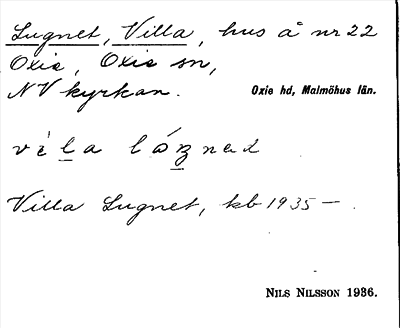 Lugnet, Villa, hus å nr 22
Oxie, Oxie sn,
NV kyrkan.
Oxie hd, Malmöhus län.
Villa Lugnet, kb 1935 — .
NILS NILSSON 1936.